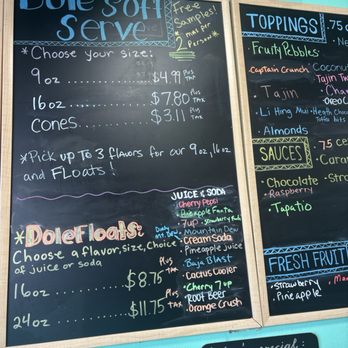 Dole Soft
Serve
Free
Samples!
2 max per
Person
*Choose your size:
9oz ......... $4.99 Plus Tax
16oz ......... $7.80 Plus Tax
Cones ......... $3.11 Plus Tax
*Pick up to 3 flavors for our 9oz, 16oz
and Floats!
*Dole Floats:
Choose a flavor, size, Choice
of juice or soda
16oz ......... $8.75 plus tax
24oz ......... $11.75 plus tax
JUICE & SODA
Cherry Pepsi
Pineapple Fanta
7up
Strawberry
Mountain Dew
Cream Soda
Pineapple juice
Baja Blast
Cactus Cooler
Cherry 7up
Root Beer
Orange Crush
TOPPINGS .75
Fruity Pebbles
Cap'tain Crunch
Coconut
Tajin
Tajin
Li Hing Mui
Heath
Almonds
SAUCES .75
Chocolate
Raspberry
Caram
Stra
Tapatio
FRESH FRUIT
Strawberry
Pineapple